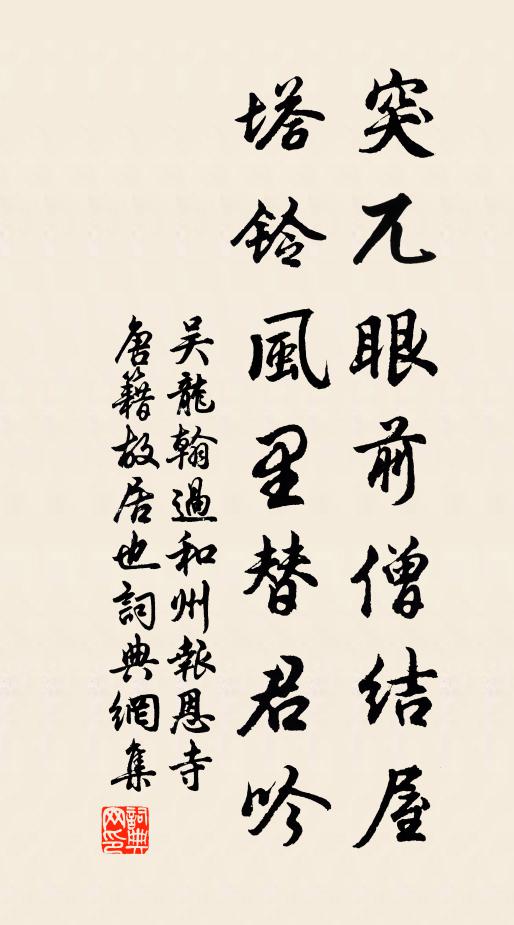 突兀眼前僧結屋
塔鈴風里替君吟
吴龍翰過和州報恩寺
唐籍故居也詞典網集
詞典网印